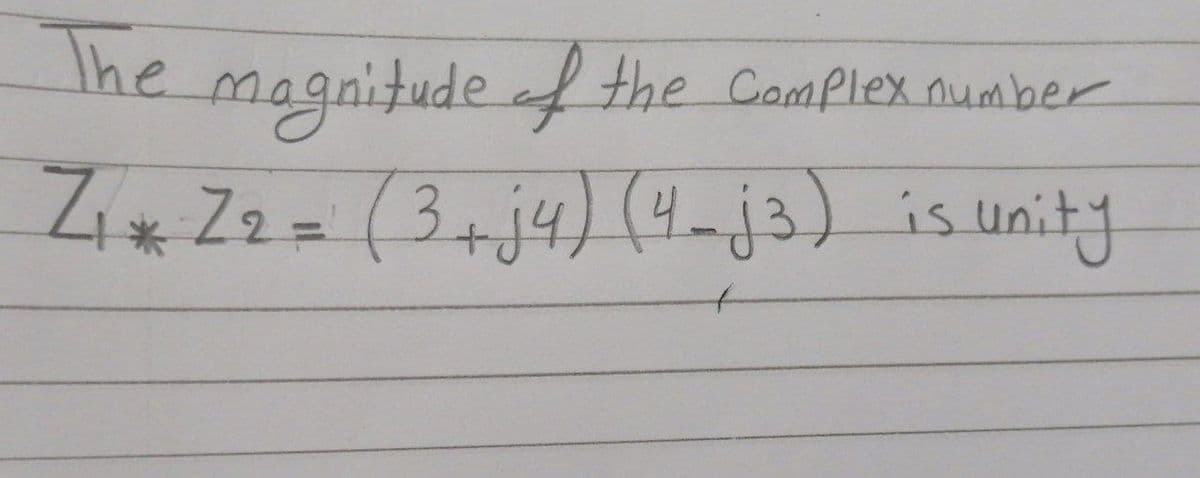 The magnitude of the Complex number
Z1 * Z2 = (3+j4) (4-j3) is unity